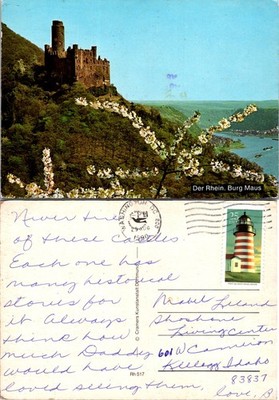 Der Rhein. Burg Maus
Never tire
of these Castles
Each one has
many historical
stories for
it Always
think how
much Daddy
would have
loved seeing them.
RH 517
© Cramers Kunstanstalt Dortmund
25
Mabel Leland
Shoshone
Living Center
601 W Cameron
Kellogg Idaho
83837
Love, B